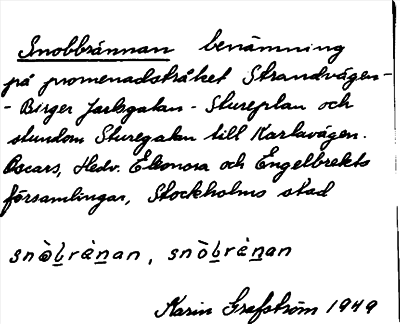 Snobbrännan benämning
på promenadstråket Strandvägen-
- Birger Jarlsgatan - Stureplan och
stundom Sturegatan till Karlavägen.
Oscars, Hedv. Eleonora och Engelbrekts
församlingar, Stockholms stad
snòb̲rèn̲an, snòb̲rèn̲an
Karin Grafström 1949